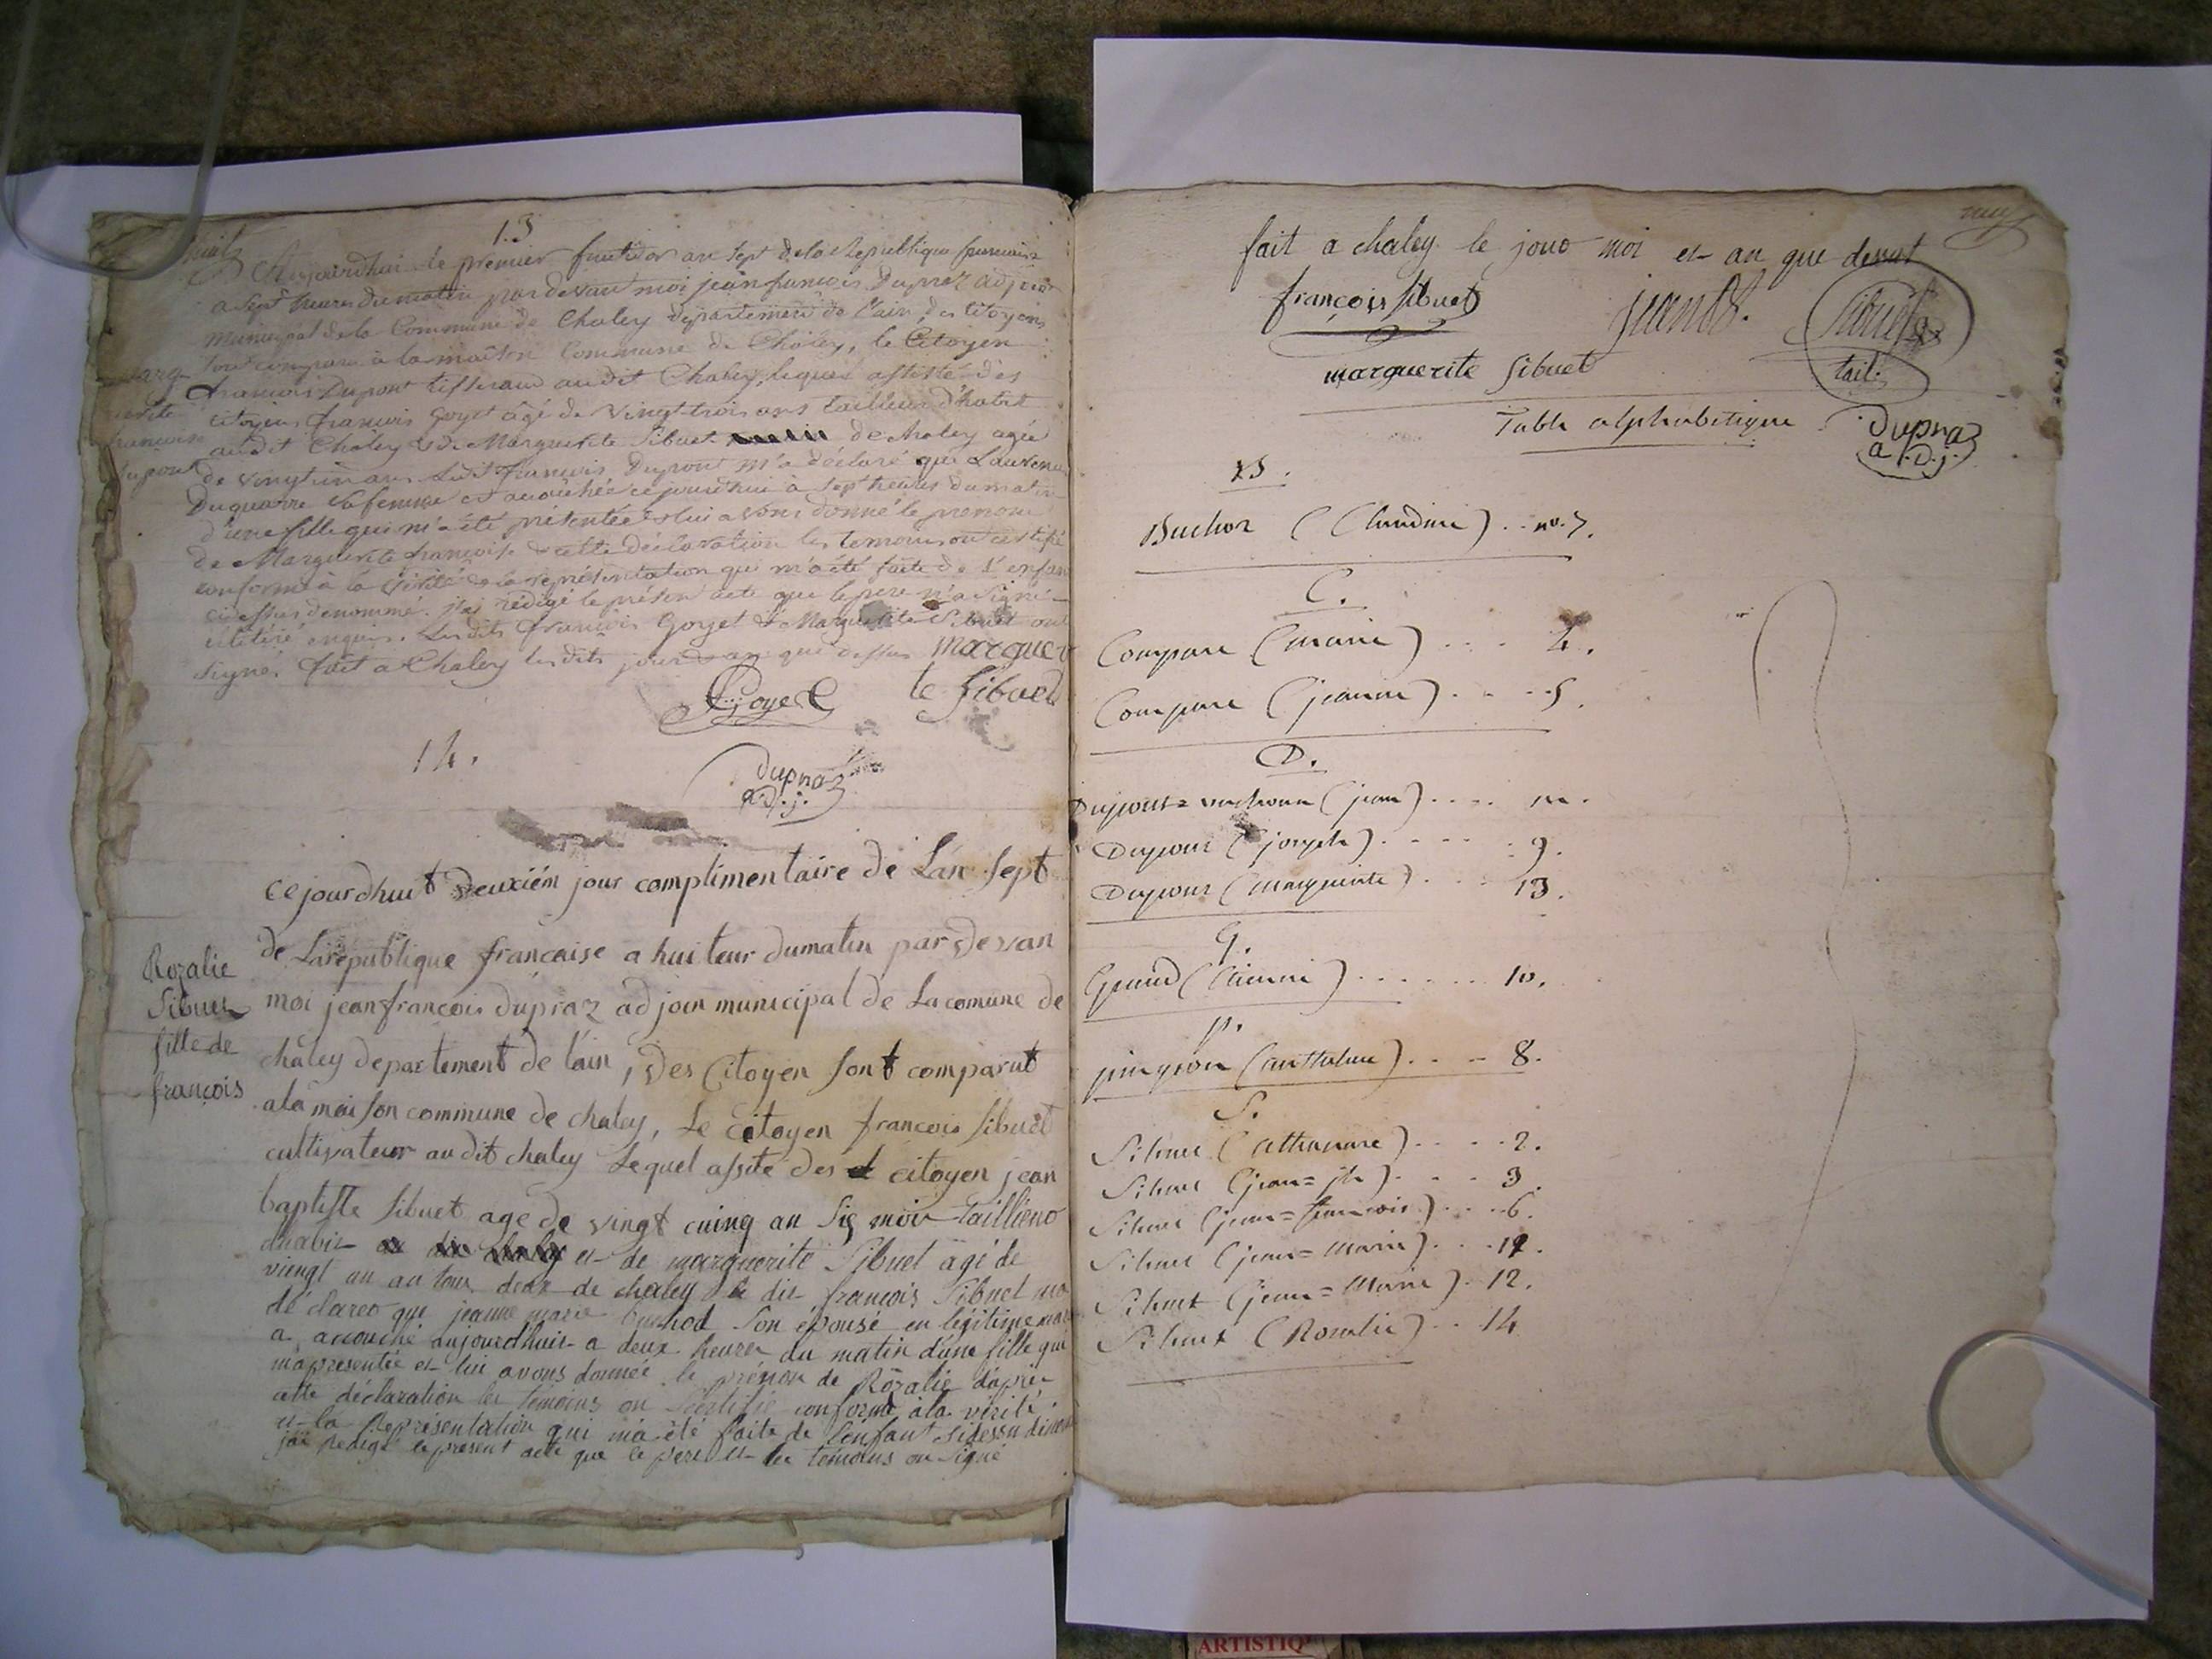 huit
13
Aujourdhui le premier fructidor an sept de la Republique francaise
a sept heures du matin par devant moi jean francois Dupraz adjoint
municipal de la Commune de Chaley departement de l'ain, des Citoyens
sont comparu à la maison Commune de Chaley, le Citoyen
francois Dupont tisserand audit Chaley, lequel assisté des
citoyens francois Goyet âgé de vingt-trois ans tailleur d'habit
audit Chaley & de Marguerite Sibuet de chaley agée
de vingt un ans ledit francois Dupont m'a déclaré que
sa femme est accouchée ce jourdhui à sept heures du matin
d'une fille qui m'a été présentée & lui avons donné le prenom
de Marguerite françoise cette déclaration les temoins ont certifié
conforme à la vérité & la représentation qui m'a été faite de l'enfant
cidessus denommé. j'ai rédigé le présent acte que le pere n'a signé
enquis. Lesdits francois Goyet & Marguerite Sibuet ont
signés fait a Chaley lesdits jour & an que dessus marguer
te Sibuet
Goyet
marg
uerite
francoise
Dupont
14.
dupraz
a.d.j.
ce jourdhuit deuxiém jour complimentaire de Lan sept
de Larepublique francaise a huiteur dumatin par devan
moi jean francois dupraz ad join municipal de La comune de
chaley departement de l'ain, des Citoyen sont comparut
ala maison commune de chaley, Le citoyen francois sibuet
cultivateur au dit chaley Lequel assité des citoyen jean
baptiste sibuet age de vingt cuinq an sig moir taillieuo
dhabit et de marguerite Sibuet agé de
viengt un an tous deux de chaley Le dit francois Sibuet ma
dé clareo que jeanne marie buchod son épousé en légitime mar
a accouché aujourdhuit a deux heures du matin d'úne fille qui
mapresentée et lui avons donnée le prénom de Rozalie daprér
cette déclaration les temoins on certifié conforme ala vérité
et la Représentation qui ma été faite de lenfant sidessu
jai redigé le present acte que le pere et les témoins on signé
Rozalie
Sibuet
fille de
françois
fait a chaley le jouo moi et an que desut
françois sibuet
jean B.
Sibuet
tail.
marguerite sibuet
Table alphabetique
dupraz
a.d.j.
B.
Buchor (Claudine) .. no. 7.
C.
Compare (marie) .... 4.
Compare (jeanne) .... 5.
D.
Dupont = (jean) ....
Dupont (joseph) .... 9.
Dupont (marguerite) ... 13.
G.
Grand (Etienne) ...... 10.
p.
pingeon (anthelme) ... 8.
S.
Sibuet (Athanase) .... 2.
Sibuet (jean = jh) .... 3.
Sibuet (jean = francois) ... 6.
Sibuet (jean = marie) ...
Sibuet (jean = Marie) . 12.
Sibuet (Rozalie) .. 14
ARTISTIQ